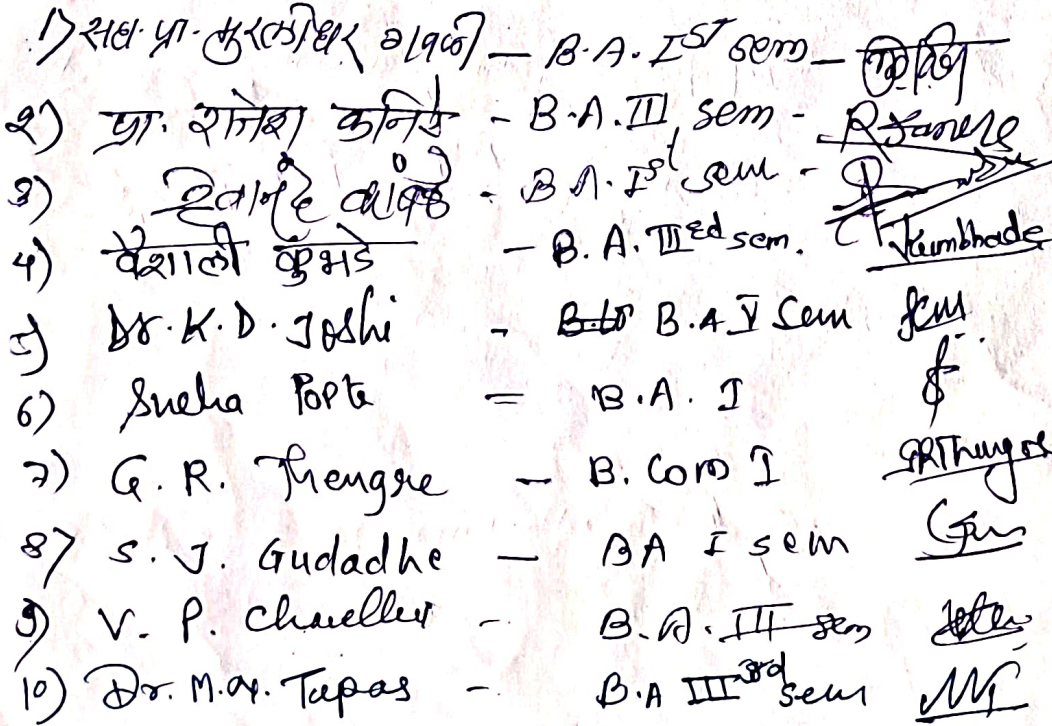 1) सह. प्रा. मुरलीधर गवळी - B.A. Ist sem -
२) प्रा. राजेश कनिरे - B.A. III sem - R Kanere
३) कांबळे - B.A. Ist sem -
४) वैशाली कुंभडे - B. A. IIIed sem. Vkumbhade
5) Dr. K. D. Joshi - B.A V Sem
6) Sneha Popte = B.A. I
7) G. R. Thengre - B. Com I
8) S. J. Gudadhe - BA I sem
9) V. P. - B.A. III sem
10) Dr. M. Tapas - B.A III rd sem